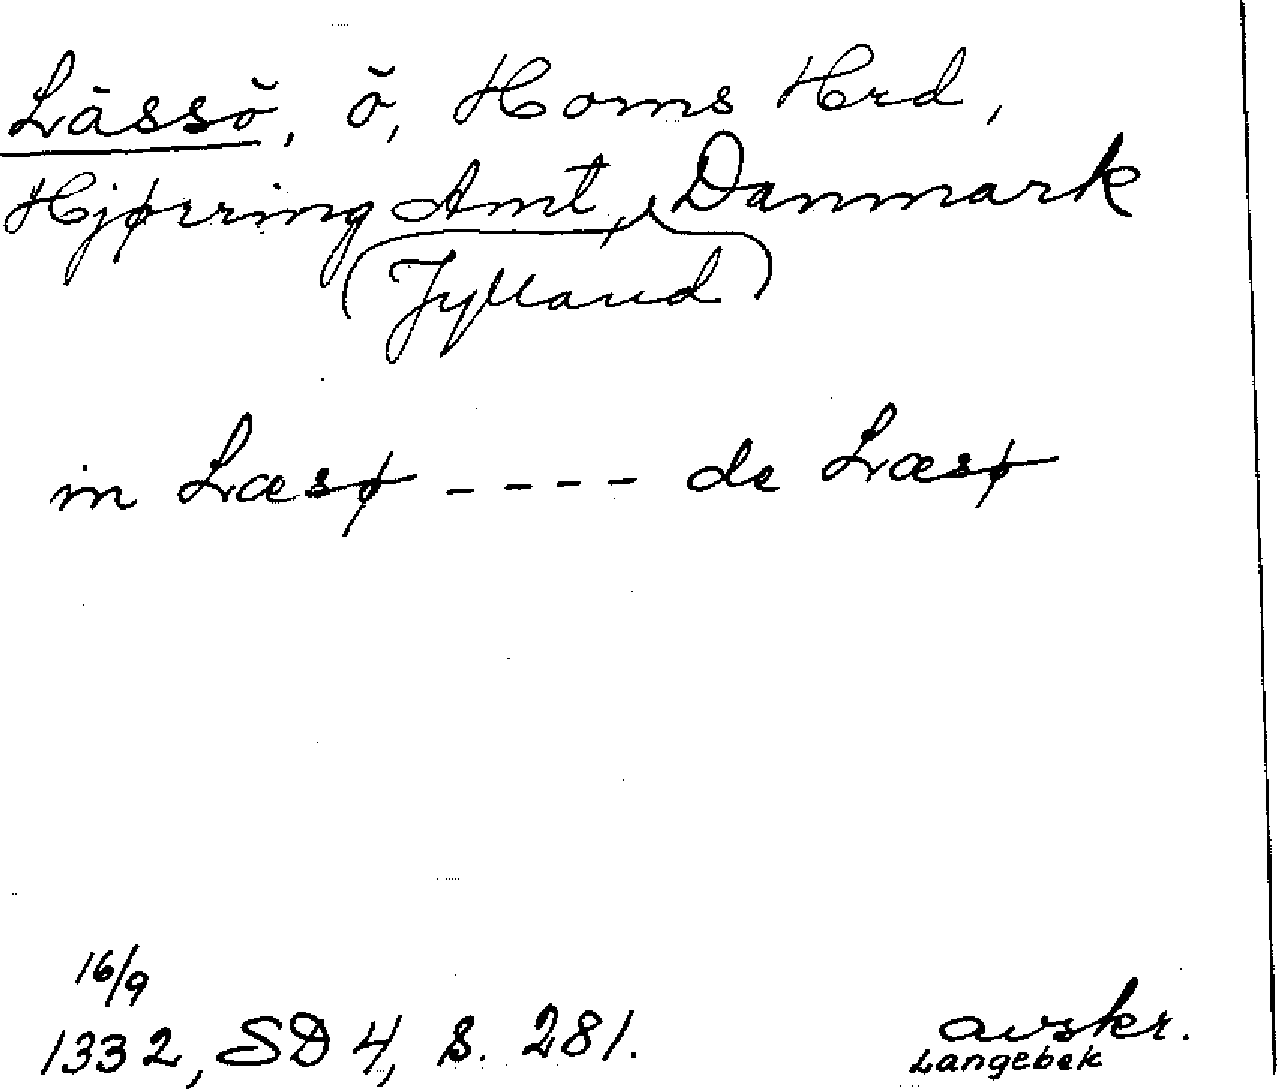 Lässö, ö, Horns Hrd,
Hjørring Amt, Danmark
(Jylland)
in Læsø - - - - de Læsø
16/9
1332, SD 4, s. 281.
avskr.
Langebek